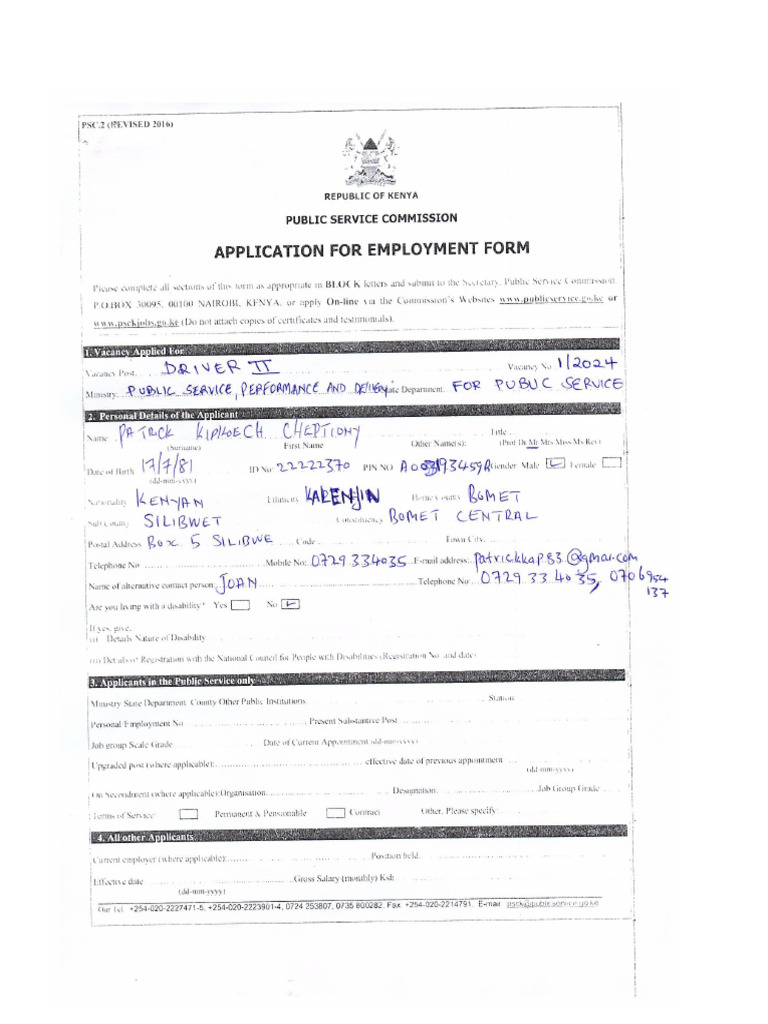 PSC.2 (REVISED 2016)
REPUBLIC OF KENYA
PUBLIC SERVICE COMMISSION
APPLICATION FOR EMPLOYMENT FORM
Please complete all sections of this form as appropriate in BLOCK letters and submit to the Secretary, Public Service Commission
P.O.BOX 30095, 00100 NAIROBI, KENYA, or apply On-line via the Commission's Websites www.publicservice.go.ke or
www.psckjobs.go.ke (Do not attach copies of certificates and testimonials).
1. Vacancy Applied For
Vacancy Post DRIVER II Vacancy No 1/2024
Ministry PUBLIC SERVICE, PERFORMANCE AND State Department. FOR PUBLIC SERVICE
2. Personal Details of the Applicant
Name PATRICK KIPKOECH CHEPTIONY Title
(Surname) First Name Other Name(s): (Prof Dr Mr Mrs Miss Ms Rev)
Date of Birth 17/7/81 ID No 22222370 PIN NO Gender Male Female
(dd-mm-yyyy)
Nationality KENYAN Ethnicity KALENJIN Home County BOMET
Sub County SILIBWET Constituency BOMET CENTRAL
Postal Address BOX 5 SILIBWE Code Town City
Telephone No Mobile No: 0729 334035 E-mail address: patrickkap83@gmai.com
Name of alternative contact person JOAN Telephone No 0729 33 4035, 0706954
137
Are you living with a disability? Yes No
If yes, give,
(i) Details Nature of Disability
(ii) Details of Registration with the National Council for People with Disabilities (Registration No and date)
3. Applicants in the Public Service only
Ministry State Department County Other Public Institutions Station
Personal Employment No Present Substantive Post
Job group Scale Grade Date of Current Appointment (dd-mm-yyyy)
Upgraded post (where applicable): effective date of previous appointment
(dd-mm-yyyy)
On Secondment (where applicable):Organisation Designation Job Group Grade
Terms of Service Permanent & Pensionable Contract Other, Please specify
4. All other Applicants
Current employer (where applicable): Position held
Effective date Gross Salary (monthly) Ksh
(dd-mm-yyyy)
Our Tel +254-020-2227471-5, +254-020-2223901-4, 0724 253807, 0735 800282, Fax +254-020-2214791, E-mail psck@publicservice.go.ke